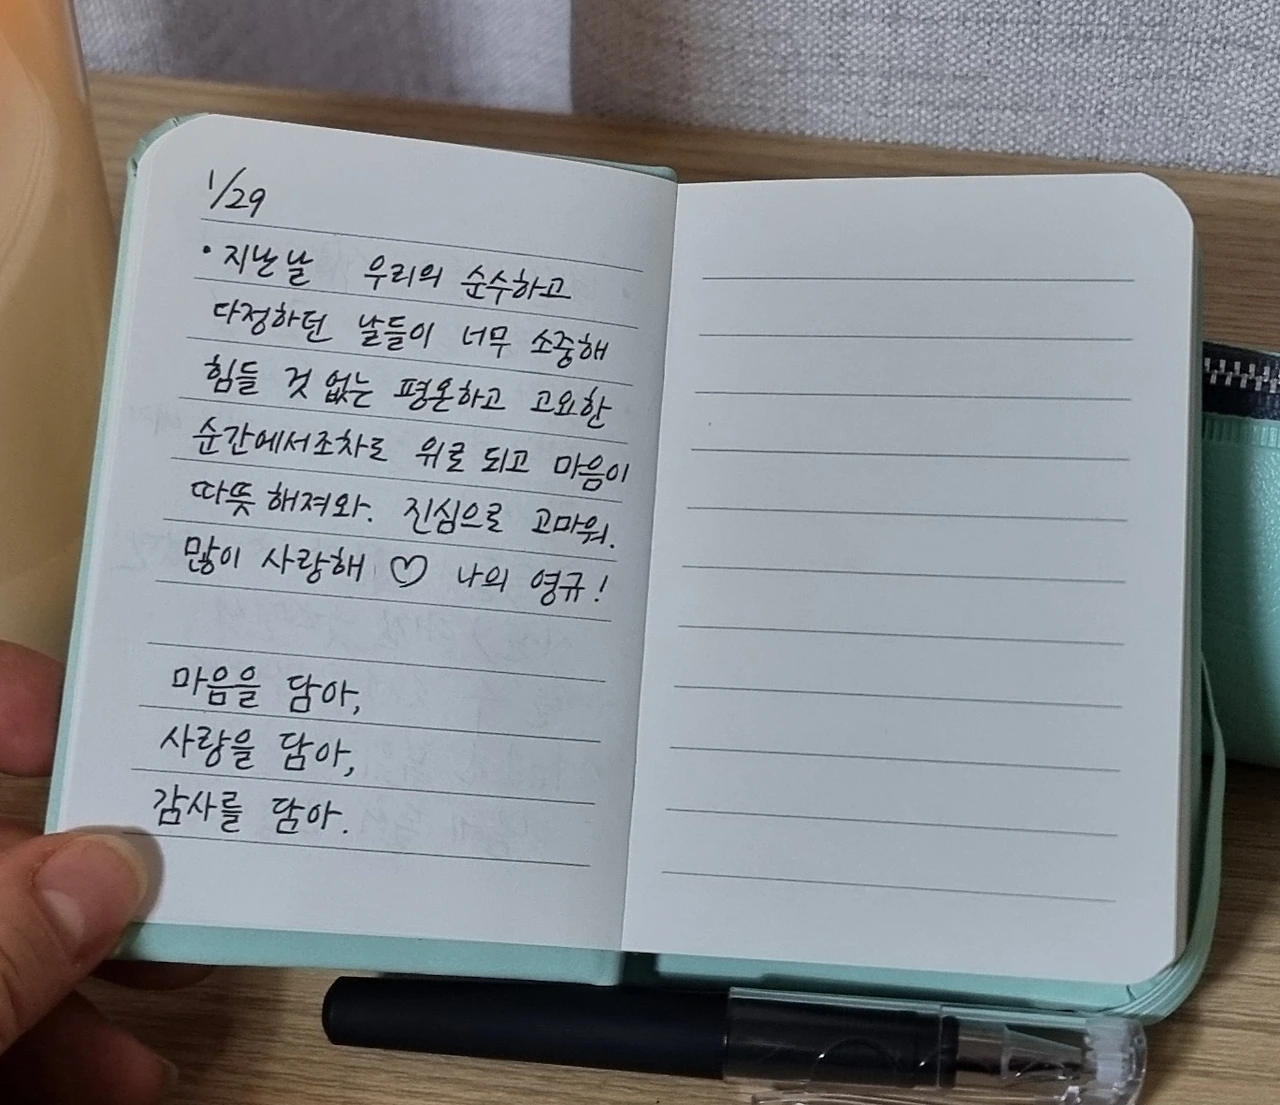 1/29
• 지난날 우리의 순수하고
다정하던 날들이 너무 소중해
힘들 것 없는 평온하고 고요한
순간에서조차도 위로 되고 마음이
따뜻해져와. 진심으로 고마워.
많이 사랑해 ♡ 나의 영규!
마음을 담아,
사랑을 담아,
감사를 담아.